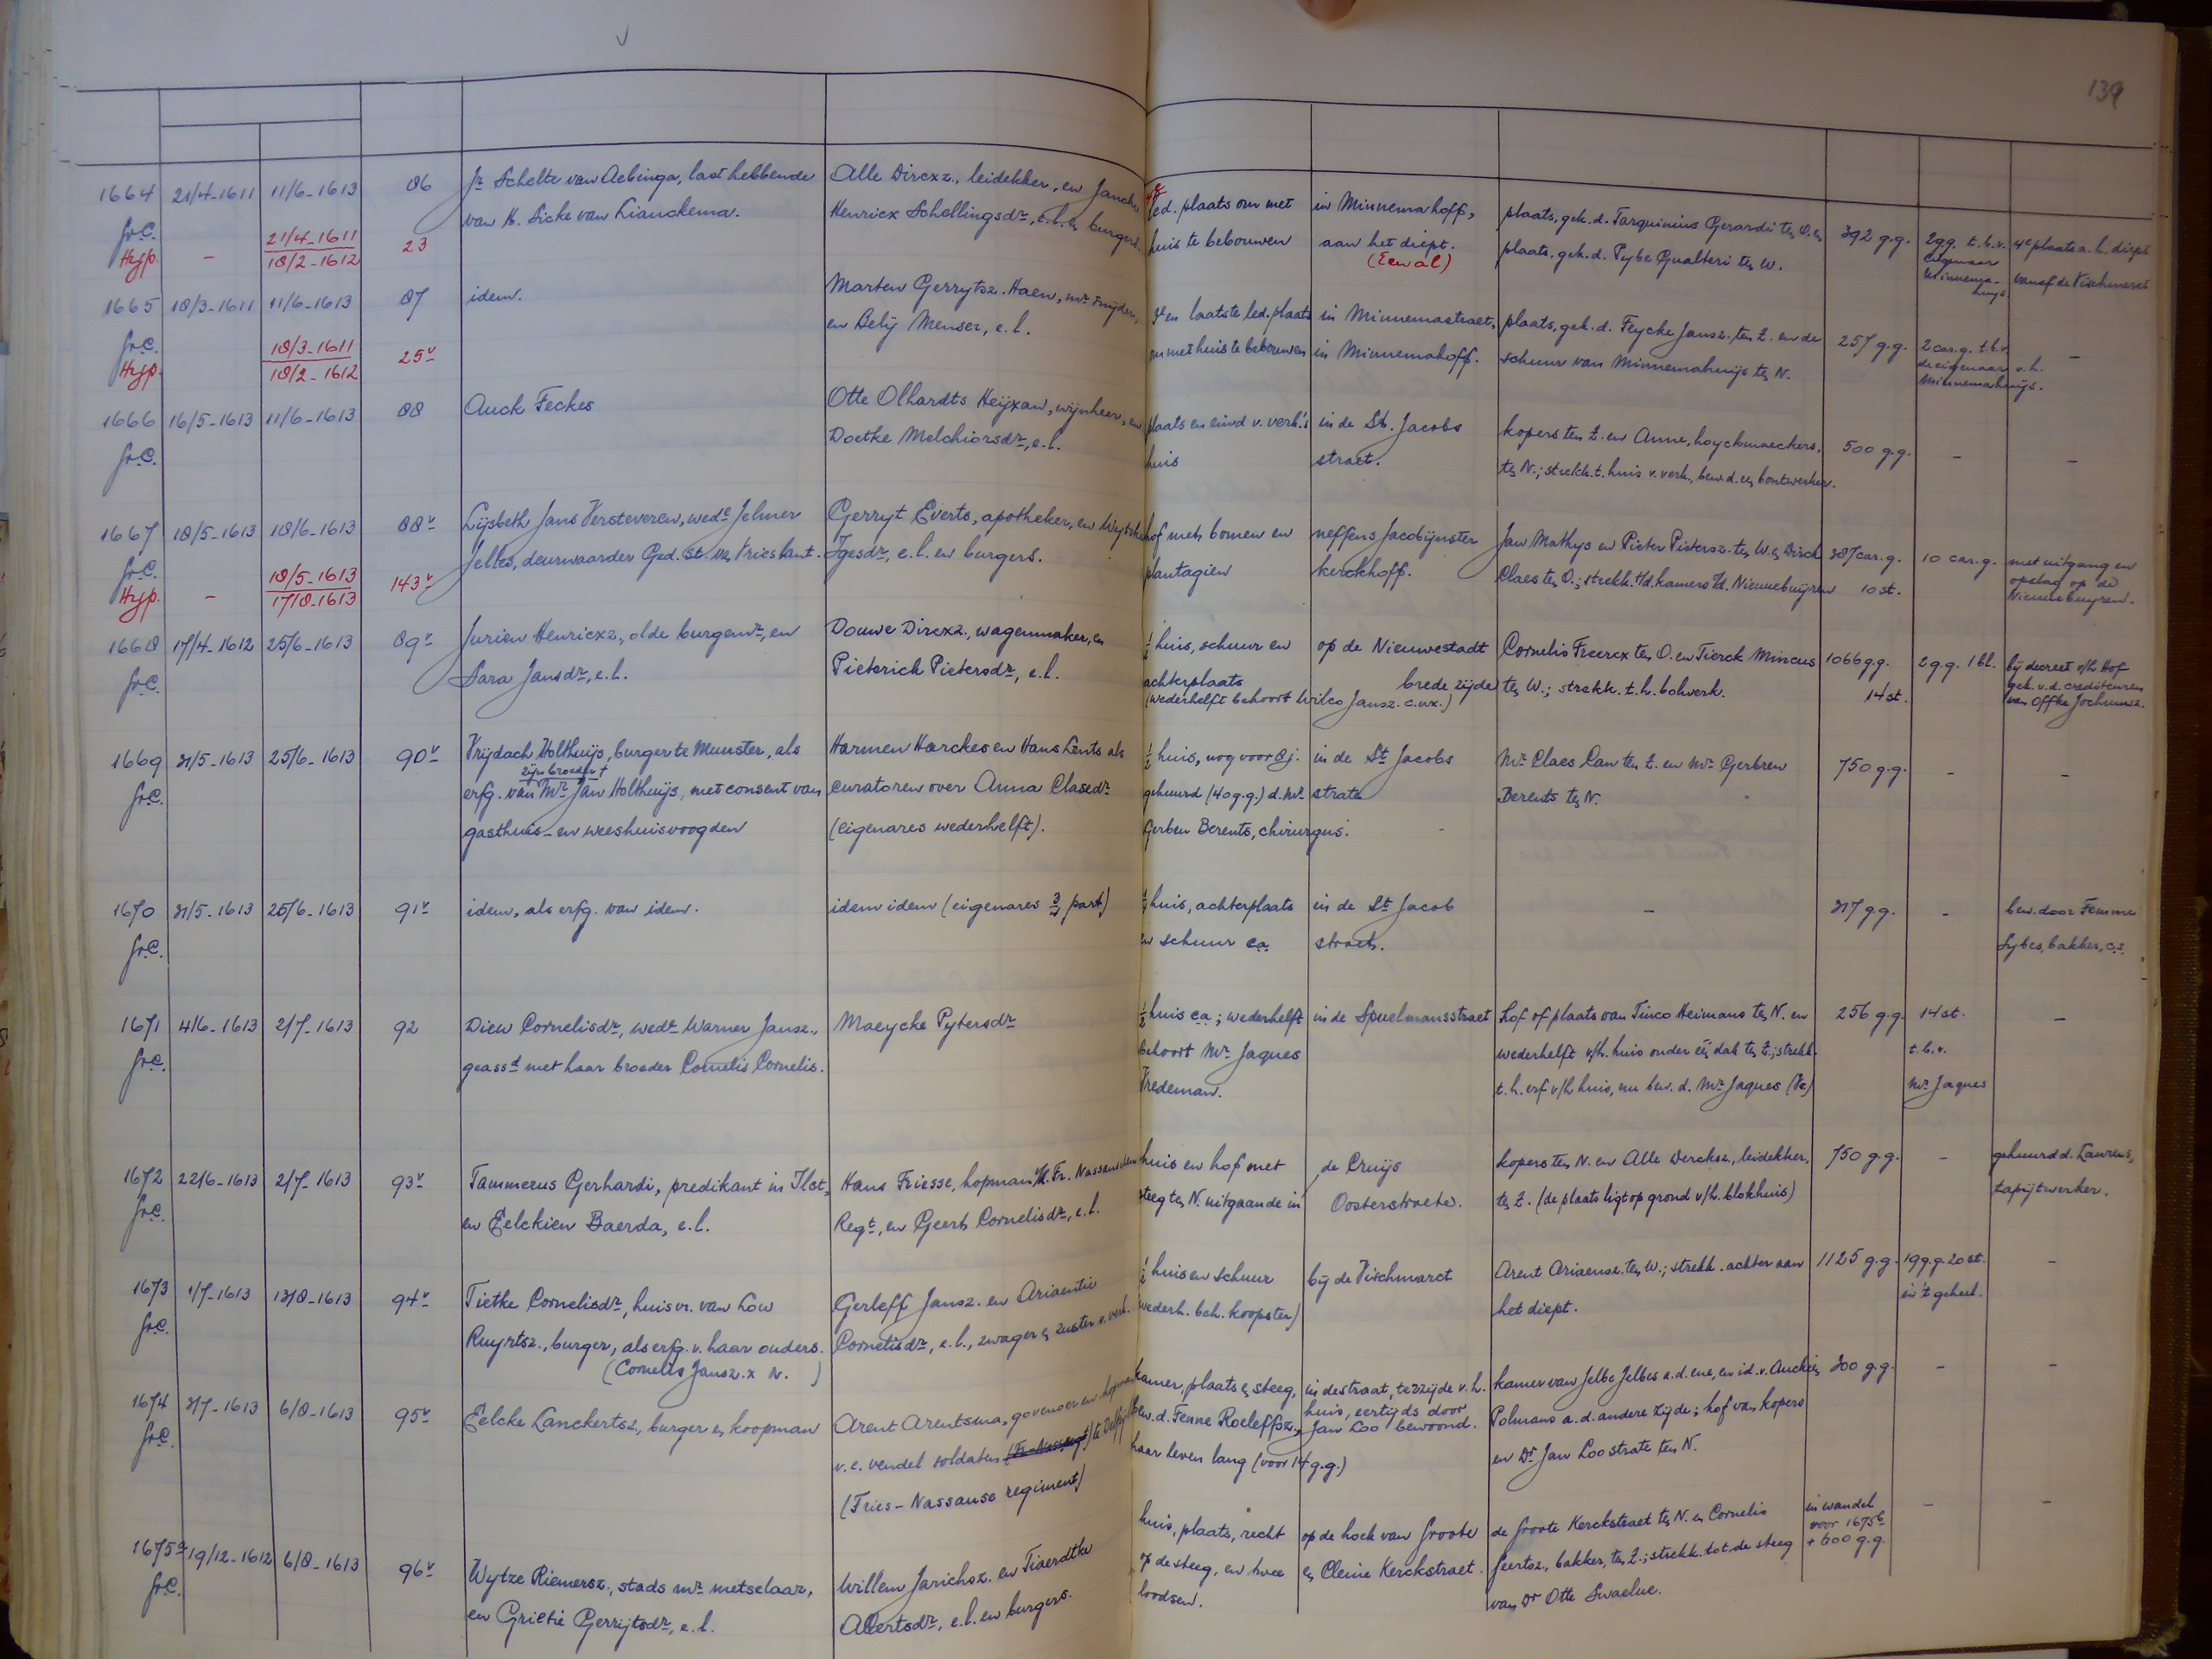 139
1664 21/4-1611 11/6-1613 86 Jr Schelte van Aebinga, last hebbende Alle Dircxz., leidekker, en Jancke led. plaats om met in Minnemahoff, plaats, gek. d. Tarquinius Gerardi ten O. en 392 g.g. 2 g.g. t.b.v. 4e plaats a. h. diept
Gr.C. van H. Sicke van Liauckema. Henricx Schellingsdr, e.l. en burgers. huis te bebouwen aan het diept. plaats, gek. d. Pybe Gualteri ten W. eigenaar vanaf de Vischmerct
Hyp. - 21/4-1611 23 (Eewal) Minnema-
18/2-1612 huys
1665 18/3-1611 11/6-1613 87 idem. Marten Gerrytsz. Haen, mr snijder, 3e en laatste led. plaats in Minnemastraet, plaats, gek. d. Feycke Jansz. ten Z. en de 257 g.g. 2 car.g. t.b.v. -
Gr.C. en Belij Menser, e.l. om met huis te bebouwen in Minnemahoff. schuur van Minnemahuijs ten N. de eigenaar v.h.
Hyp. 18/3-1611 25v Minnemahuijs.
18/2-1612
1666 16/5-1613 11/6-1613 88 Auck Feckes Otte Olhardts Heijxan, wijnheer, en plaats en eind v. verk.'s in de St. Jacobs kopers ten Z. en Anne, hoyckmaeckers, 500 g.g. - -
Gr.C. Doetke Melchiorsdr, e.l. huis straet. ten N.; strekk. t. huis v. verk., bew. d. een bontwerker.
1667 18/5-1613 18/6-1613 88v Lijsbeth Jans Versteveren, wede Jelmer Gerryt Everts, apotheker, en Wytske hof met bomen en neffens Jacobijnster Jan Mathys en Pieter Pietersz. ten W. en Dirck 387 car.g. 10 car.g. met uitgang en
Gr.C. Jelles, deurwaarder Ged. St. van Vrieslant. Igesdr, e.l. en burgers. plantagien kerckhoff. Claes ten O.; strekk. t/d. kamers v/d. Nieuwebuijren 10 st. opslag op de
Hyp. - 18/5-1613 143v Nieuwebuyren.
17/8-1613
1668 17/4-1612 25/6-1613 89v Jurien Henricxz., olde burgemr, en Douwe Dircxz., wagenmaker, en ½ huis, schuur en op de Nieuwestadt Cornelis Freercx ten O. en Tierck Mincus 1066 g.g. 2 g.g. 1 bl. bij decreet v/h. Hof
Gr.C. Sara Jansdr, e.l. Pieterick Pietersdr, e.l. achterplaats brede zijde ten W.; strekk. t. h. bolwerk. 14 st. gek. v.d. crediteuren
(wederhelft behoort Wilco Jansz. c.ux.) van Offke Jochumsz.
1669 31/5-1613 25/6-1613 90v Vrijdach Holthuijs, burger te Munster, als Harmen Harckes en Hans Lents als ½ huis, nog voor 8 j. in de St Jacobs Mr Claes Can ten Z. en Mr Gerbren 750 g.g. - -
zijn broeder †
Gr.C. erfg. van Mr Jan Holthuijs, met consent van curatoren over Anna Clasedr gehuurd (40 g.g.) d. Mr strate Berents ten N.
gasthuis- en weeshuisvoogden (eigenares wederhelft). Gerben Berents, chirurgus.
1670 31/5-1613 25/6-1613 91v idem, als erfg. van idem. idem idem (eigenares ¾ part) ¼ huis, achterplaats in de St Jacob - 317 g.g. - bew. door Femme
Gr.C. en schuur c.a. straet. Sybes, bakker, c.s.
1671 4/6-1613 2/7-1613 92 Diew Cornelisdr, wedr Warner Jansz., Maeycke Pytersdr ½ huis c.a.; wederhelft in de Speelmansstraet hof of plaats van Tinco Heimans ten N. en 256 g.g. 14 st. -
Gr.C. geasst met haar broeder Cornelis Cornelis. behoort Mr Jaques wederhelft v/h. huis onder eén dak ten Z.; strekk. t.b.v.
Vredeman. t. h. erf v/h huis, nu bew. d. Mr Jaques (Ve) Mr Jaques
1672 22/6-1613 2/7-1613 93v Tammerus Gerhardi, predikant in Ilst, Hans Friesse, hopman v/h. Fr. Nassauschen huis en hof met de Cruijs kopers ten N. en Alle Dercksz., leidekker, 750 g.g. - gehuurd d. Laurens,
Gr.C. en Eelckien Baerda, e.l. Regt, en Geert Cornelisdr, e.l. steeg ten N. uitgaande in Oosterstraete. ten Z. (de plaats ligt op grond v/h. blokhuis) tapijtwerker.
1673 1/7-1613 13/8-1613 94v Tietke Cornelisdr, huisvr. van Low Gerleff Jansz. en Ariaentie ½ huis en schuur bij de Vischmarct Arent Ariaensz. ten W.; strekk. achter aan 1125 g.g. 19 g.g. 20 st. -
Gr.C. Ruyrtsz., burger, als erfg. v. haar ouders. Cornelisdr, e.l., zwager en zuster v. verk. wederh. beh. koopster) het diept. in 't geheel.
(Cornelis Jansz. x N. )
1674 3/7-1613 6/8-1613 95v Eelcke Lanckertsz., burger en koopman Arent Arentsma, governeer en hopman kamer, plaats en steeg, in de straat, terzijde v.h. kamer van Jelbe Jelbes a.d. ene, en id. v. Auckien 300 g.g. - -
Gr.C. v.e. vendel soldaten (Fr-Nass. regt) te Delfzijl bew. d. Fenne Roeleffsz., huis, eertijds door Polmans a.d. andere zijde; hof van kopers
(Fries-Nassause regiment) haar leven lang (voor 14 g.g.) Jan Loo bewoond. en Dr Jan Loo strate ten N.
1675a 19/12-1612 6/8-1613 96v Wytze Riemersz., stads mr metselaar, Willem Jarichsz. en Tiaerdtke huis, plaats, recht op de hoek van Groote de Groote Kerckstraet ten N. en Cornelis in wandel - -
Gr.C. en Grietie Gerrijtsdr, e.l. Allertsdr, e.l. en burgers. op de steeg, en twee en Cleine Kerckstraet. Geertsz., bakker, ten Z.; strekk. tot de steeg voor 1675b
loodsen. van Dr Otte Swaelue. + 600 g.g.